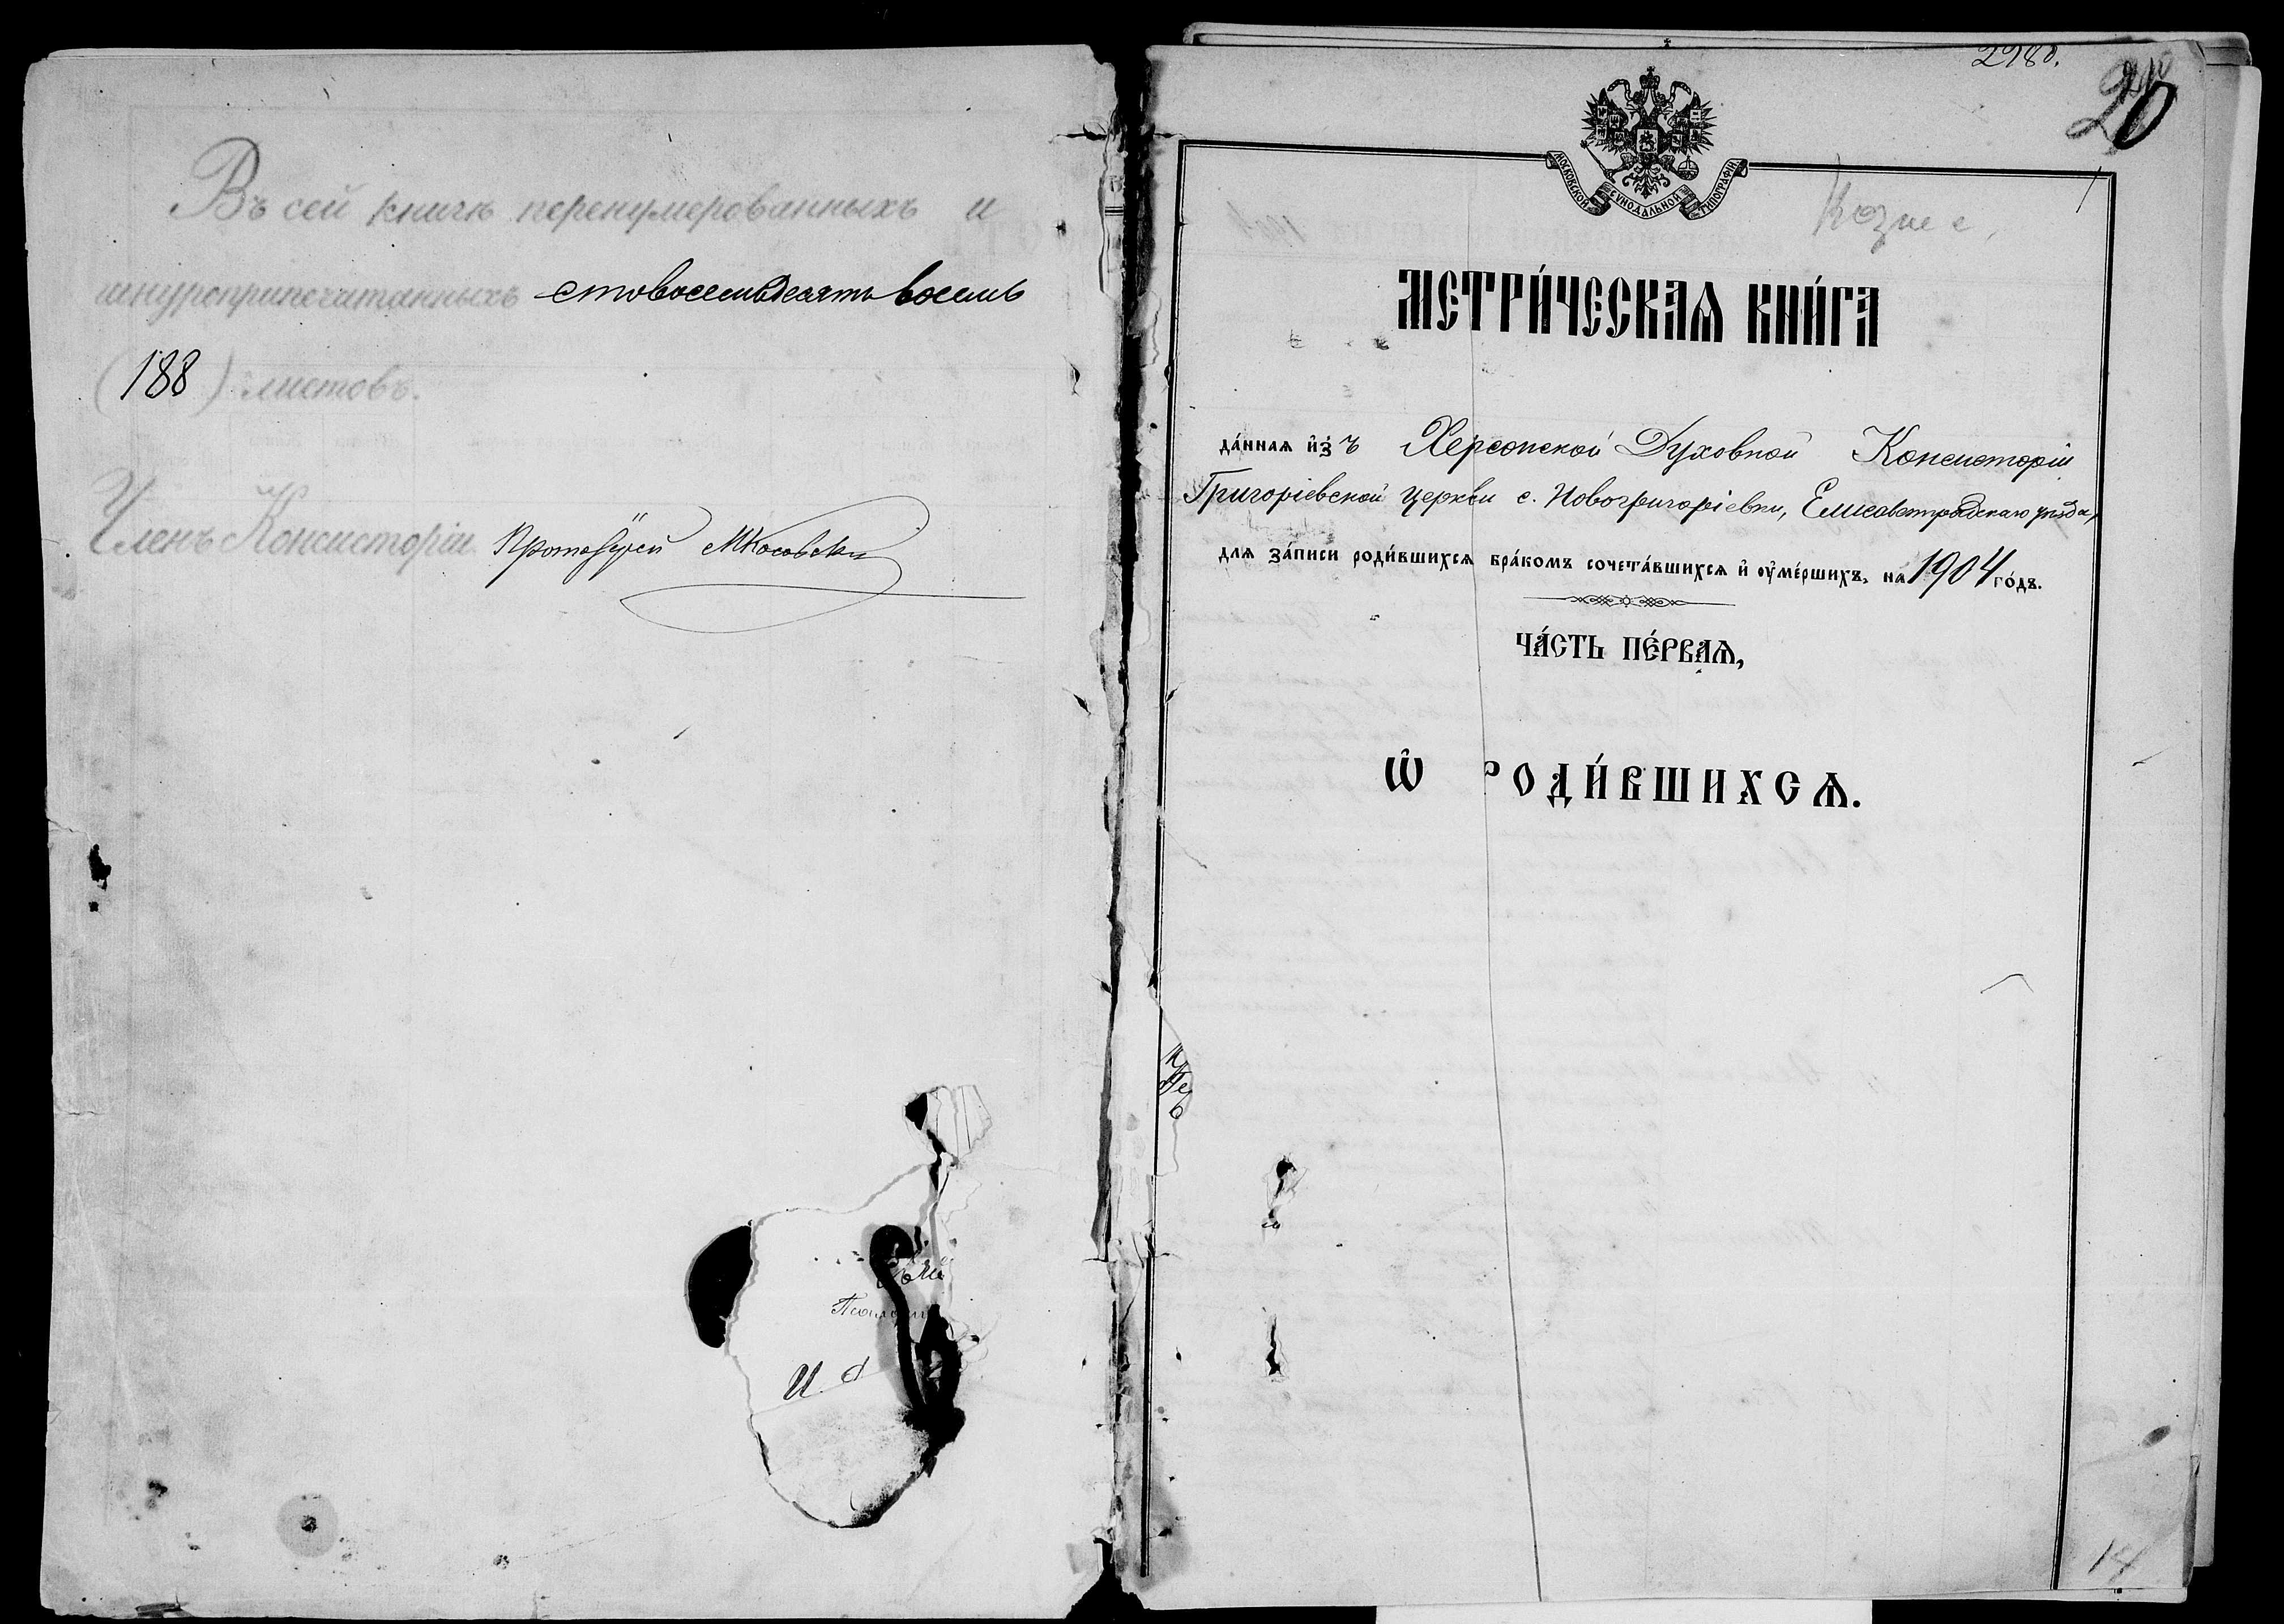 Въ сей книгѣ перенумерованныхъ и
шнуроприпечатанныхъ стовосемьдесятъ восемь
(188) листовъ.
Членъ Консисторіи Протоіерей
2980.
20
МОСКОВСКОЙ СѴНОДАЛЬНОЙ ТИПОГРАФІИ
МЕТРИ́ЧЕСКАѦ КНИ́ГА
да́ннаѧ и҆з̾ Херсонской Духовной Консисторіи
Григоріевской церкви с. Новогригоріевки, Елисаветградскаго уѣзда,
длѧ за́писи роди́вшихсѧ бра́комъ сочета́вшихсѧ и҆ ᲂу҆ме́ршихъ, на 1904 го́дъ.
ЧА́СТЬ ПЕ́РВАѦ,
Ѡ҆ РОДИ́ВШИХСѦ.
И. д
14